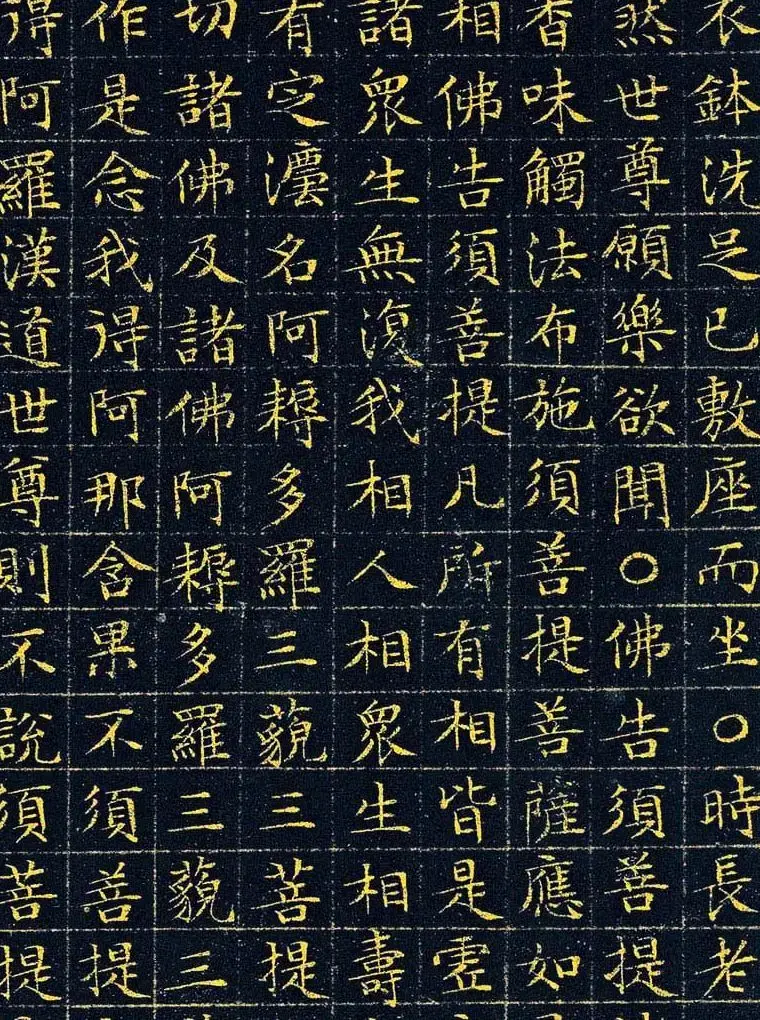 衣鉢洗足已敷座而坐○時長老
然世尊願樂欲聞○佛告須菩提
香味觸法布施須菩提菩薩應如
相佛告須菩提凡所有相皆是虛
諸眾生無復我相人相眾生相壽
有定法名阿耨多羅三藐三菩提
切諸佛及諸佛阿耨多羅三藐三
作是念我得阿那含果不須菩提
得阿羅漢道世尊則不說須菩提